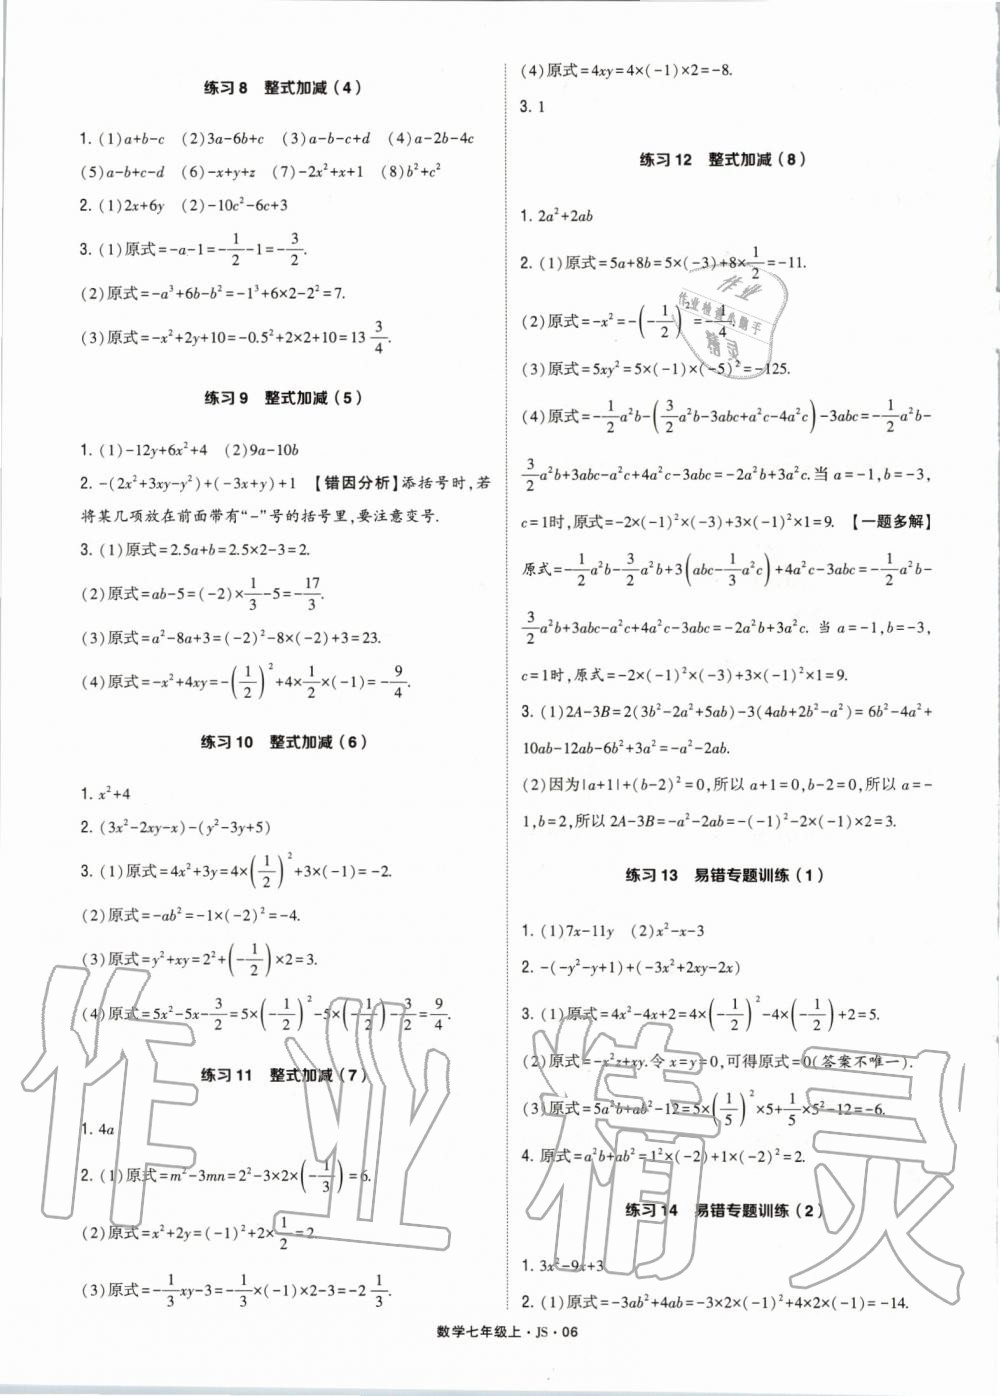 练习8 整式加减(4)
1. (1)a+b-c (2)3a-6b+c (3)a-b-c+d (4)a-2b-4c
(5)a-b+c-d (6)-x+y+z (7)-2x²+x+1 (8)b²+c²
2. (1)2x+6y (2)-10c²-6c+3
3. (1)原式=-a-1=-1/2-1=-3/2.
(2)原式=-a³+6b-b²=-1³+6×2-2²=7.
(3)原式=-x²+2y+10=-0.5²+2×2+10=13 3/4.
练习9 整式加减(5)
1. (1)-12y+6x²+4 (2)9a-10b
2. -(2x²+3xy-y²)+(-3x+y)+1 【错因分析】添括号时,若
将某几项放在前面带有“-”号的括号里,要注意变号.
3. (1)原式=2.5a+b=2.5×2-3=2.
(2)原式=ab-5=(-2)×1/3-5=-17/3.
(3)原式=a²-8a+3=(-2)²-8×(-2)+3=23.
(4)原式=-x²+4xy=-(1/2)²+4×1/2×(-1)=-9/4.
练习10 整式加减(6)
1. x²+4
2. (3x²-2xy-x)-(y²-3y+5)
3. (1)原式=4x²+3y=4×(1/2)²+3×(-1)=-2.
(2)原式=-ab²=-1×(-2)²=-4.
(3)原式=y²+xy=2²+(-1/2)×2=3.
(4)原式=5x²-5x-3/2=5×(-1/2)²-5×(-1/2)-3/2=9/4.
练习11 整式加减(7)
1. 4a
2. (1)原式=m²-3mn=2²-3×2×(-1/3)=6.
(2)原式=x²+2y=(-1)²+2×1/2=2
(3)原式=-1/3xy-3=-1/3×(-1)×2-3=-2 1/3.
(4)原式=4xy=4×(-1)×2=-8.
3. 1
练习12 整式加减(8)
1. 2a²+2ab
2. (1)原式=5a+8b=5×(-3)+8×1/2=-11.
(2)原式=-x²=-(-1/2)²=-1/4.
(3)原式=5xy²=5×(-1)×(-5)²=-125.
(4)原式=-1/2a²b-(3/2a²b-3abc+a²c-4a²c)-3abc=-1/2a²b-
3/2a²b+3abc-a²c+4a²c-3abc=-2a²b+3a²c.当a=-1,b=-3,
c=1时,原式=-2×(-1)²×(-3)+3×(-1)²×1=9. 【一题多解】
原式=-1/2a²b-3/2a²b+3(abc-1/3a²c)+4a²c-3abc=-1/2a²b-
3/2a²b+3abc-a²c+4a²c-3abc=-2a²b+3a²c. 当a=-1,b=-3,
c=1时,原式=-2×(-1)²×(-3)+3×(-1)²×1=9.
3. (1)2A-3B=2(3b²-2a²+5ab)-3(4ab+2b²-a²)=6b²-4a²+
10ab-12ab-6b²+3a²=-a²-2ab.
(2)因为|a+1|+(b-2)²=0,所以a+1=0,b-2=0,所以a=-
1,b=2,所以2A-3B=-a²-2ab=-(-1)²-2×(-1)×2=3.
练习13 易错专题训练(1)
1. (1)7x-11y (2)x²-x-3
2. -(-y²-y+1)+(-3x²+2xy-2x)
3. (1)原式=4x²-4x+2=4×(-1/2)²-4×(-1/2)+2=5.
(2)原式=-x²z+xy.令x=y=0,可得原式=0(答案不唯一).
(3)原式=5a²b+ab²-12=5×(1/5)²×5+1/5×5²-12=-6.
4. 原式=a²b+ab²=1²×(-2)+1×(-2)²=2.
练习14 易错专题训练(2)
1. 3x²-9x+3
2. (1)原式=-3ab²+4ab=-3×2×(-1)²+4×2×(-1)=-14.
数学七年级上·JS·06
作业
作业检查小助手
精灵
作业精灵